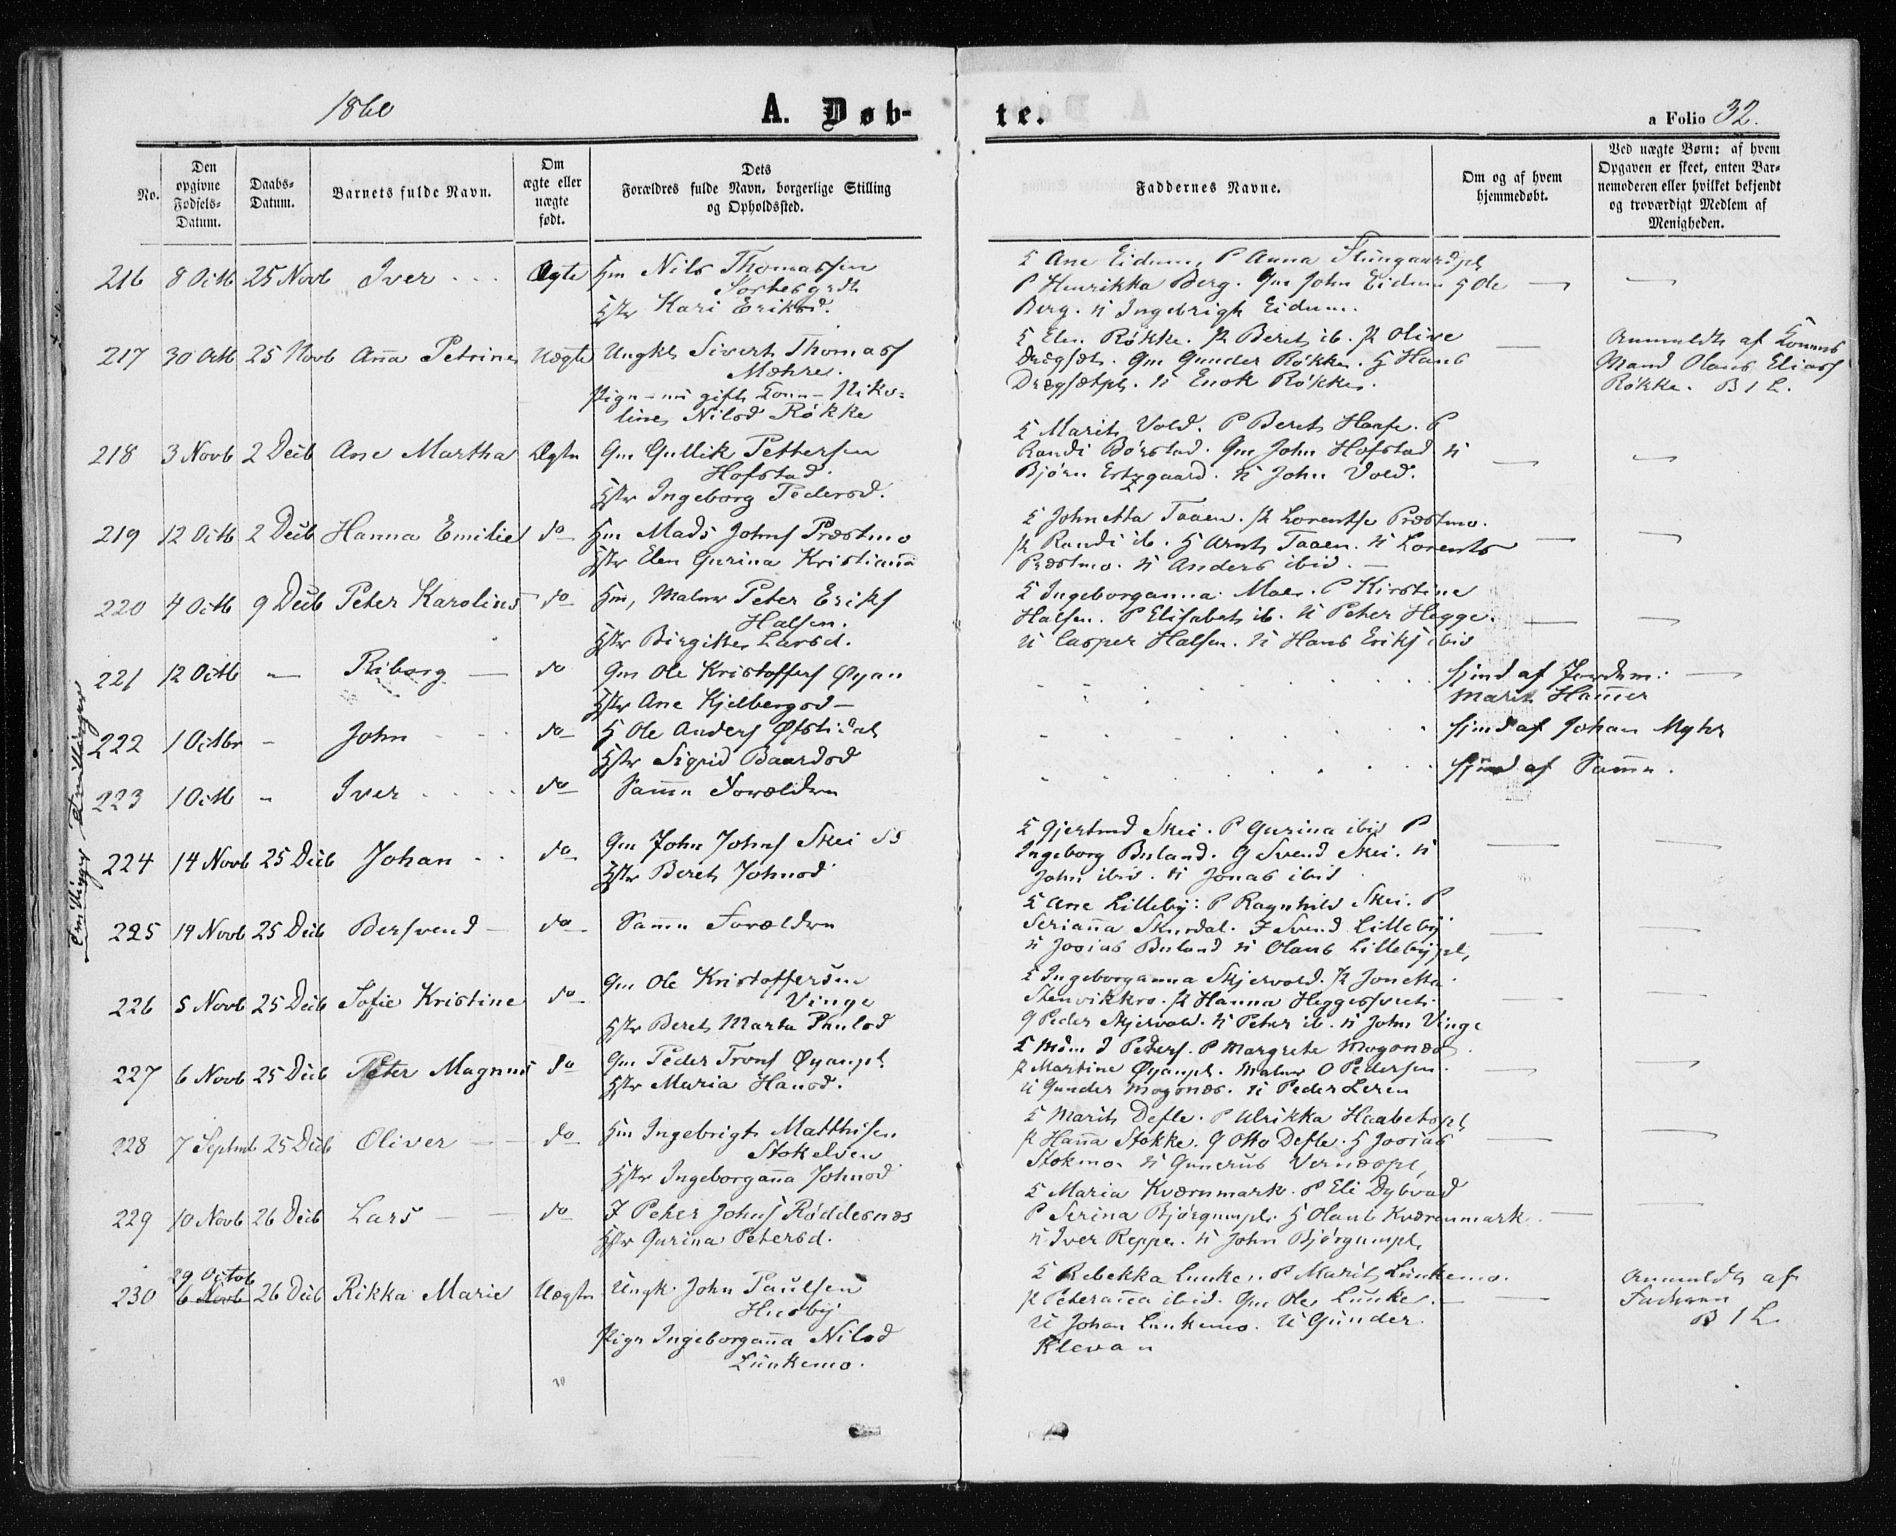 1860
A. Døb-
te.
a Folio 32.
No.
Den opgivne Fødsels-Datum.
Daabs-Datum.
Barnets fulde Navn.
Om ægte eller uægte født.
Dets Forældres fulde Navn, borgerlige Stilling og Opholdssted.
Faddernes Navne.
Om og af hvem hjemmedøbt.
Ved uægte Børn: af hvem Opgaven er skeet, enten Barnemoderen eller hvilket bekjendt og troværdigt Medlem af Menigheden.
216 8 Octb 25 Novb Iver Ægte Hm Nils Thomassen
Kari Eriksd.
K Ane Eidum, P Anna
P Henrikka Berg. Gm John Eidum G Ole
Berg. U Ingebrigt Eidum.
217 30 Octb 25 Novb Aña Petrine Uægte Ungkl Sivert Thomass
Mæhre.
Pige - nu gift - Niko-
line Nilsd Røkke
K Elen Røkke. P Beret ib. P Olive
Drægset. Gm Gunder Røkke. G Hans
U Enok Røkke.
Anmeldt af Konens
Mand Olaus Eliass
Røkke. B 1 L.
218 3 Novb 2 Decb Ane Martha Ægte Gm Gullik Pettersen
Hofstad
Ingeborg Pedersd.
K Marit Vold. P Beret P
Randi Børstad. Gm John Hofstad U
Bjørn U John Vold.
219 12 Octb 2 Decb Hanna Emilie do Hm Mads Johns Præstmo
Elen Gurina Kristiana
K Johnetta Taaen. P Lorentse Præstmo.
P Randi ib. G Arnt Taaen. U Lorents
Præstmo. U Anders ibid.
220 4 Octb 9 Decb Peter Karolius do Hm, Maler Peter Eriks
Halsen.
Birgitte Larsd.
K Ingeborganna Moe. P Kirstine
Halsen. P Elisabet ib. U Peter Hegge.
U Casper Halsen. U Hans Eriks ibid
221 12 Octb Riborg do Gm Ole Kristoffers Øyan
Ane Kjelbergsd
hjmd af Jordem:
Marit Hammer
222 1 Octbr John do G Ole Anders Øfstidal
Sigrid Baardsd
hjmd af Johan Myhr
223 1 Octb Iver do Samme Forældre
hjmd af Samme.
Tvillinger
224 14 Novb 25 Decb Johan do Gm John Johns Skei
Beret Johnsd
K Gjertrud Skei. P Gurina ibid P
Ingeborg Buland. G Svend Skei. U
John ibid. U Jonas ibid
Tvillinger
225 14 Novb 25 Decb Bersvend do Samme Forældre
K Ane Lilleby: P Ragnhild Skei. P
Serianna Skurdal. F Svend Lilleby
U Josias Buland U Olaus Lillebypl,
226 5 Novb 25 Decb Sofie Kristine do Gm Ole Kristoffersen
Vinge
Beret Marta Paulsd
K Ingeborganna Skjervold. P Jonetta
P Hanna
G Peder Skjervold. U Peter ib. U John Vinge
227 6 Novb 25 Decb Peter Magnus do Gm Peder Trons Øyanpl.
Maria Hansd.
K Mdm J Peders. P Margrete Mogsnæs
P Martine Øyanpl. Maler O Pedersen.
U Gunder Mogsnæs. U Peder Leren
228 7 Septmb 25 Decb Oliver do Hm Ingebrigt Matthisen
Stokelven
Ingeborgaña Johnsd
K Marit Defle. P Ulrikka
P Haña Stokke. G Otto Defle. G Josias
Stokmo. U Gunerus Vernæspl,
229 10 Novb 26 Decb Lars do F Peter Johns Røddesnæs
Gurina Petersd.
K Maria Kværnmark. P Eli Dybvad
P Serina Bjørgumpl. G Olaus Kværnmark
U Iver Reppe. U John Bjørgumpl,
230 29 Octob 6 Novb 26 Decb Rikka Marie Uægte Ungk. John Paulsen
Husby
Pige Ingeborgaña Nilsd
Lunkemo.
K Rebekka Lunke. P Marit Lunkemo.
P Peteraña ibid. Gm Ole Lunke.
U Johan Lunkemo. U Gunder
Klevan
Anmeldt af
Faderen
B 1 L.